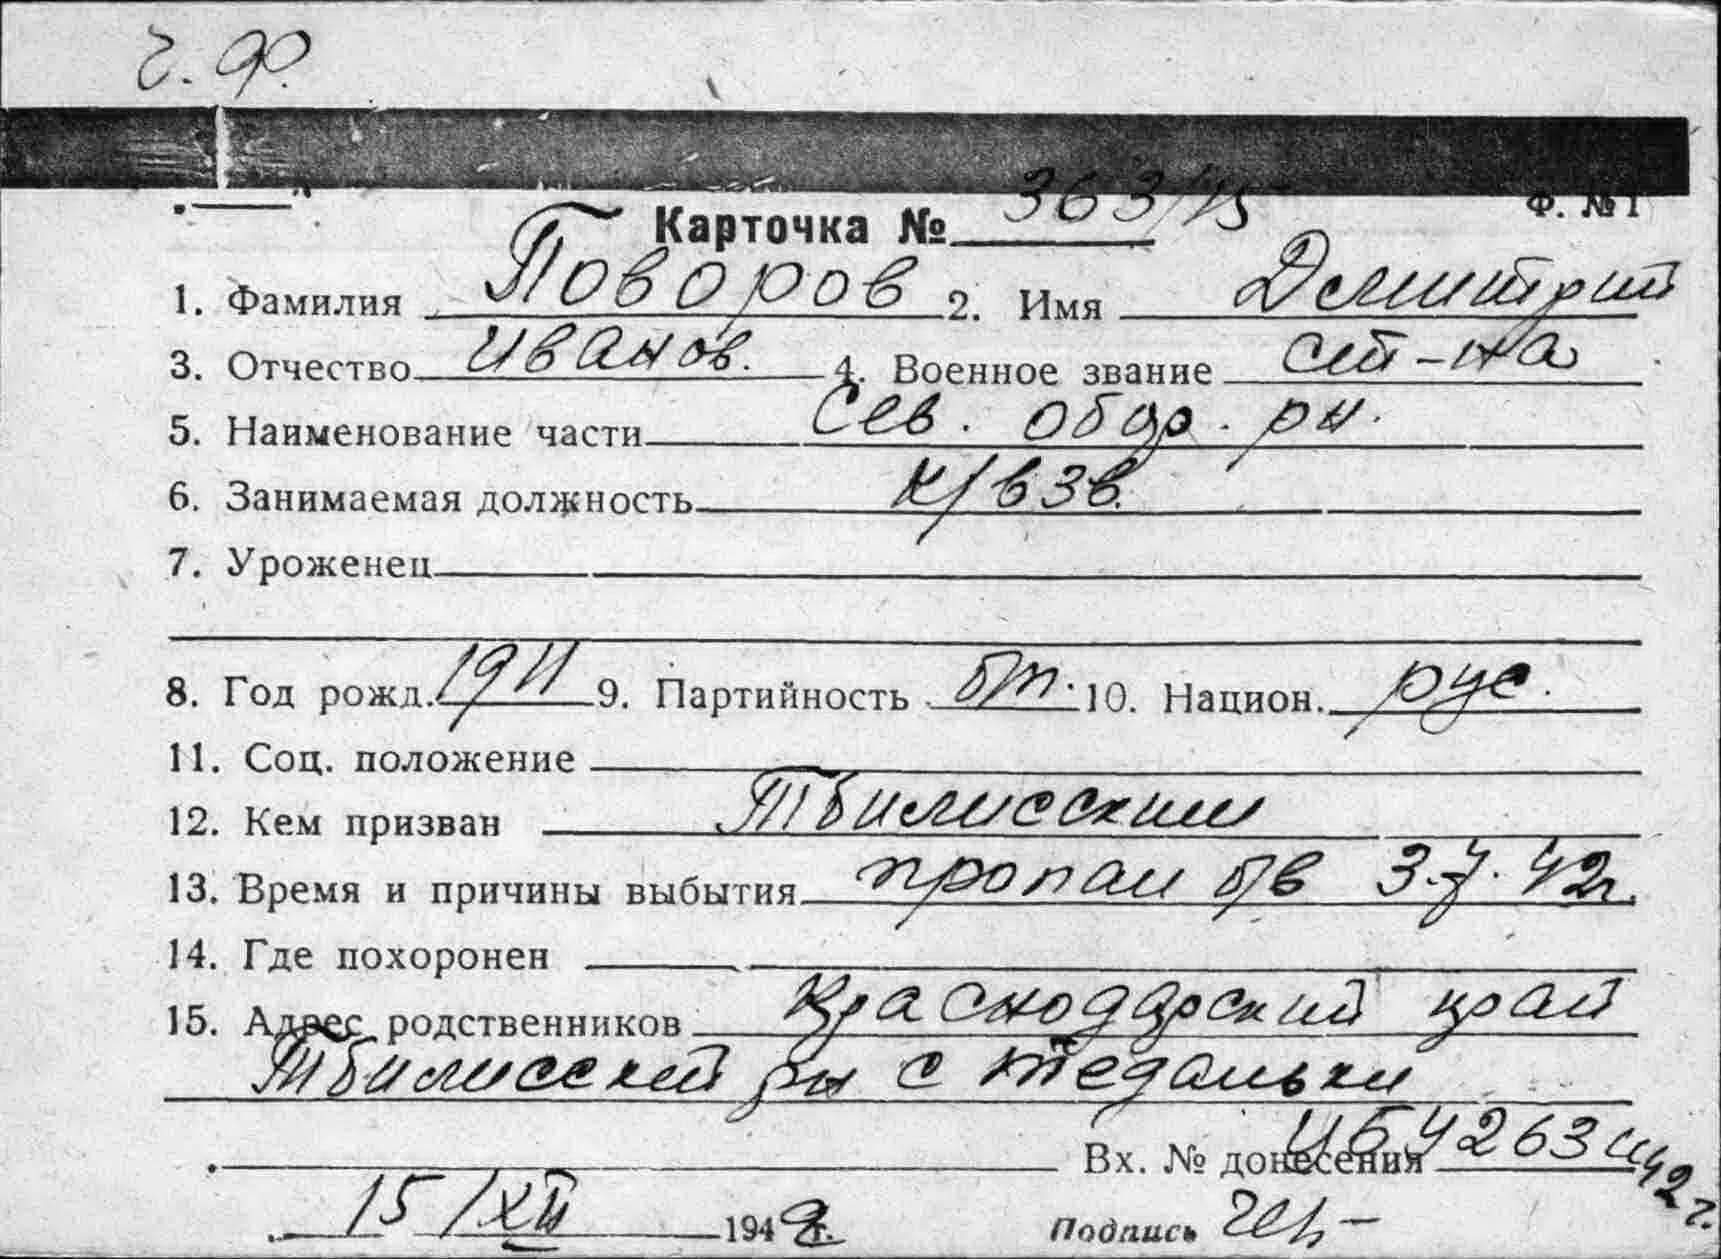 г. Ф.
Ф. № 1
Карточка № 363/15
1. Фамилия Поворов 2. Имя Дмитрий
3. Отчество Иванов. 4. Военное звание ст-на
5. Наименование части Сев. обор. рн.
6. Занимаемая должность к/взв.
7. Уроженец
8. Год рожд. 1911 9. Партийность бп. 10. Национ. рус.
11. Соц. положение
12. Кем призван Тбилисским
13. Время и причины выбытия пропал б/в 3.7.42г.
14. Где похоронен
15. Адрес родственников Краснодарский край
Тбилисский рн с
Вх. № донесения 4263 42 г.
15/XII 1942г. Подпись